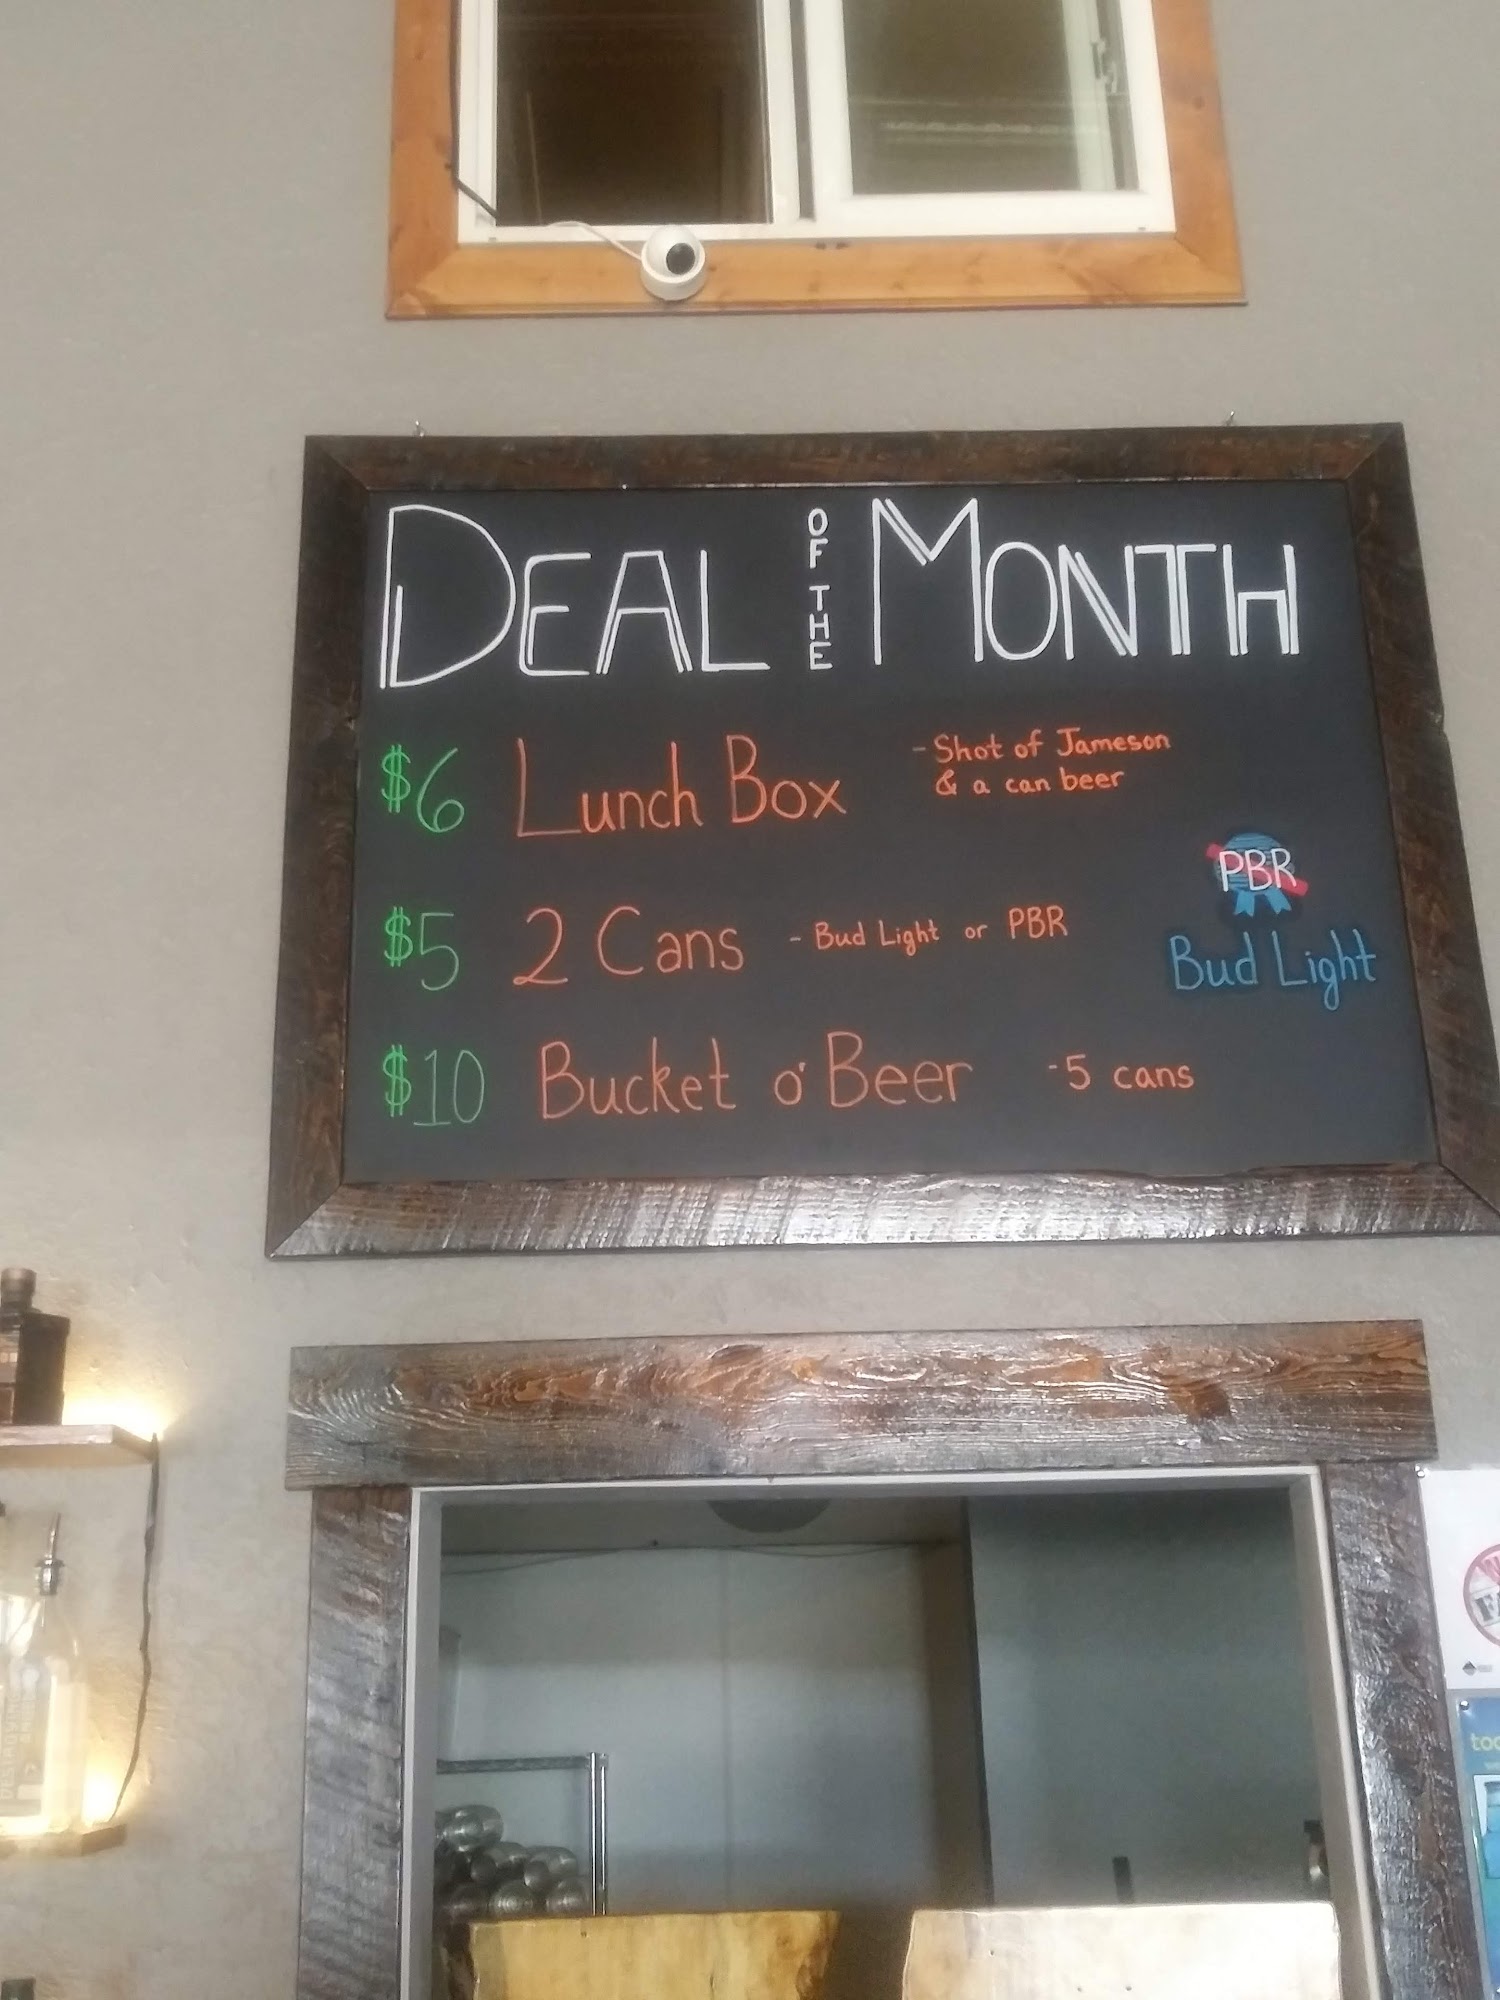 DEAL OF THE MONTH
$6 Lunch Box - Shot of Jameson
& a can beer
PBR
$5 2 Cans - Bud Light or PBR
Bud Light
$10 Bucket o' Beer - 5 cans